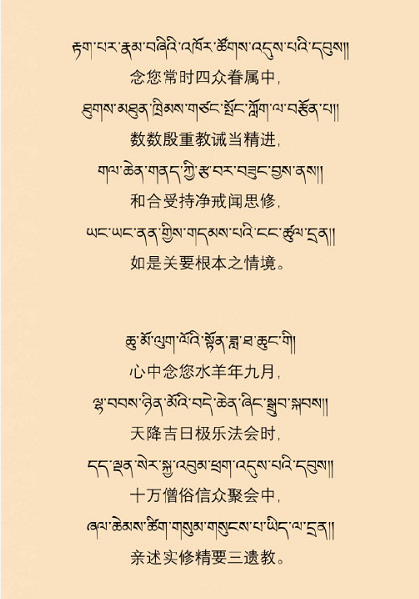 རྟག་པར་རྣམ་བཞིའི་འཁོར་ཚོགས་འདུས་པའི་དབུས།།
念您常时四众眷属中，
ཐུགས་མཐུན་ཁྲིམས་གཙང་སྤོང་ཀློག་ལ་བརྩོན་པ།།
数数殷重教诫当精进，
གལ་ཆེན་གནད་ཀྱི་རྩ་བར་བཟུང་བྱས་ནས།།
和合受持净戒闻思修，
ཡང་ཡང་ནན་གྱིས་གདམས་པའི་ངང་ཚུལ་དྲན།།
如是关要根本之情境。
ཆུ་མོ་ལུག་ལོའི་སྟོན་ཟླ་ཐ་ཆུང་གི།
心中念您水羊年九月，
ལྷ་བབས་ཉིན་མོའི་བདེ་ཆེན་ཞིང་སྒྲུབ་སྐབས།།
天降吉日极乐法会时，
དད་ལྡན་སེར་སྐྱ་འབུམ་ཕྲག་འདུས་པའི་དབུས།།
十万僧俗信众聚会中，
ཞལ་ཆེམས་ཚིག་གསུམ་གསུངས་པ་ཡིད་ལ་དྲན།།
亲述实修精要三遗教。